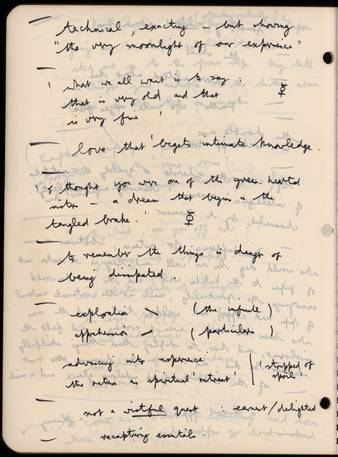 technical, exacting – but having
"the very moonlight of our experience"
'what we all want is to say:
that is very old and that
is very fine' ☿
love that 'begets intimate knowledge.
'I thought you were one of the green hearted
– a dream that began in the
tangled brake.' ☿
to remember the things in danger of
being dissipated.
exploration (the infinite)
apprehension (particulars)
advancing into experience
the return as spiritual 'retreat' 'stripped of
spoil'
not a wistful quest : earnest/delighted
recapturing essentials.